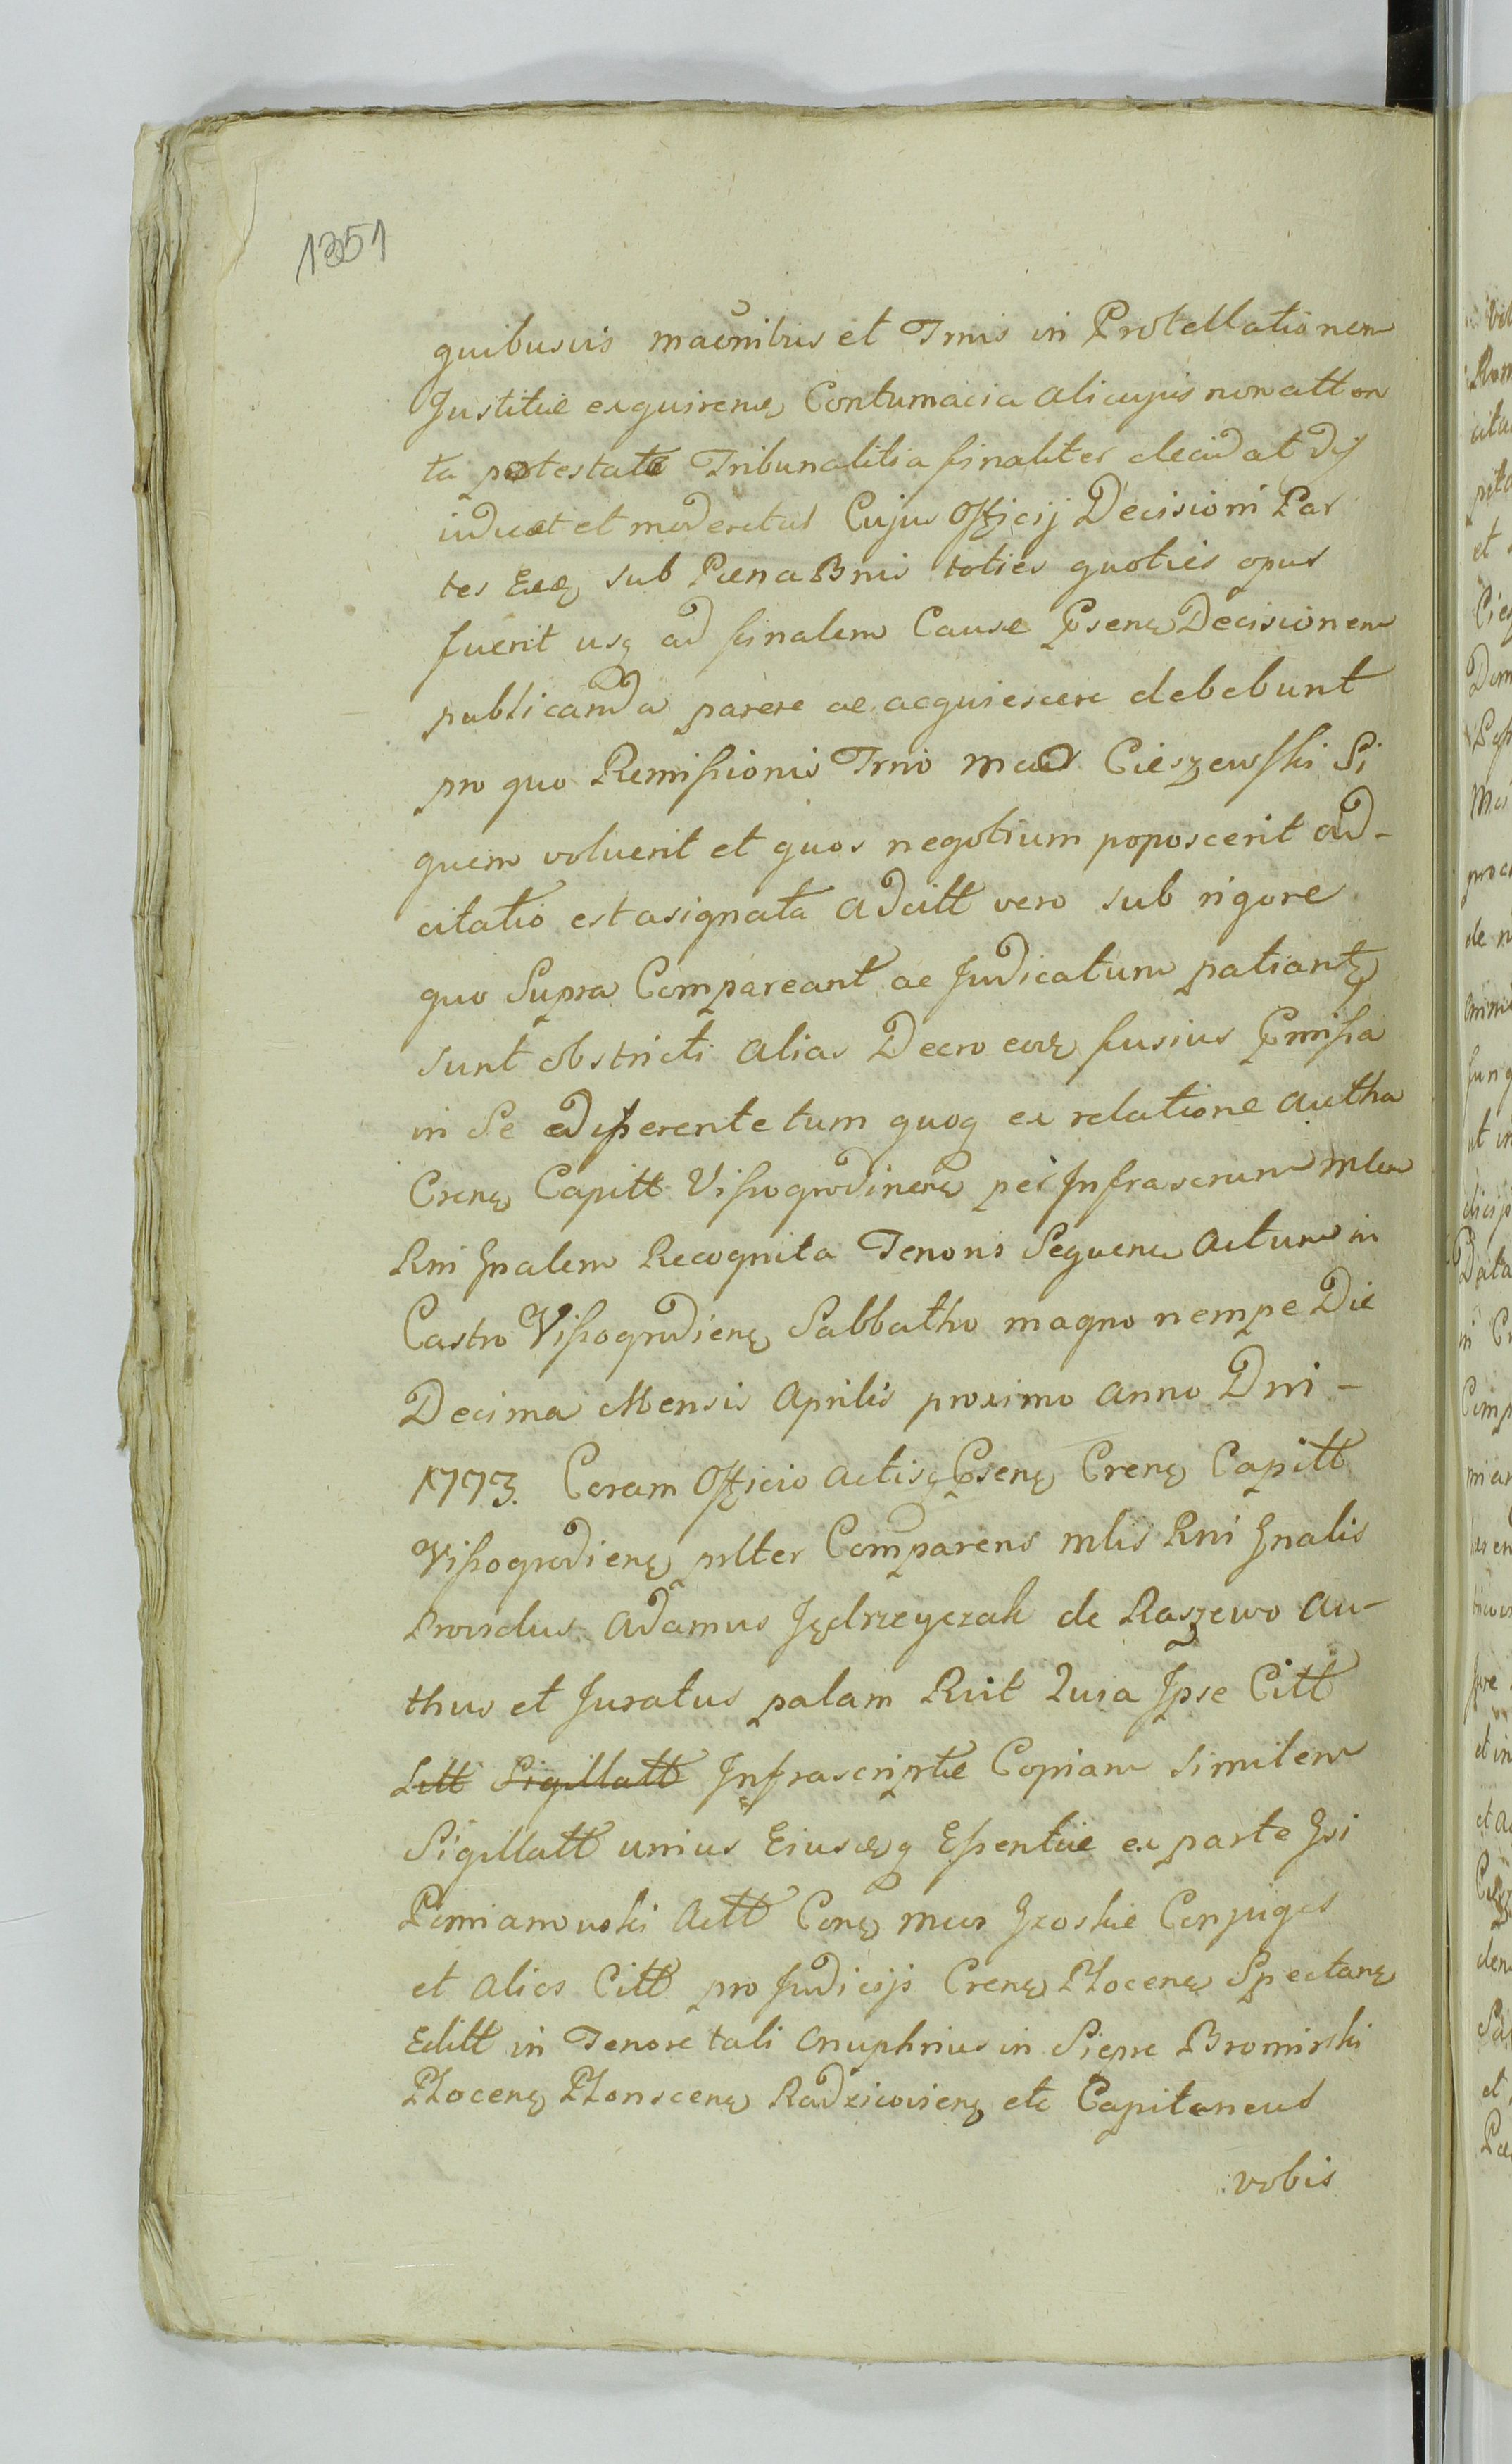 1351
quibusvis macōnibus et Trnis in Protellationem
Justitiæ exquirenę Contumacia alicujus non atten
ta potestate Tribunalitia finaliter decidat dij
iudicet et moderetur Cujus Officij Decisioni Par
tes Eæq sub Pœna Bnis toties quoties opus
fuerit usq ad finalem Causæ Psenę Decisionem
publicanda parere ac acquiescere debebunt
pro quo Remissionis Trno Cieszewski Si
quem voluerit et quos negotium poposcerit ad-
citatio est asignata adcitt vero sub rigore
quo Supra Compareant ac Judicatum patiantę
sunt obstricti alias Decro fusius Pmissa
in Se tum quoq ex relatione autha
Crenę Capitt Vissogrodinenę per Infrascrum mlem
Rni Gnalem Recognita Tenoris Sequenę Actum in
Castro Vissogrodienę Sabbatho magno nempe Die
Decima Mensis Aprilis proximo anno Dni -
1773. Coram Officio Actisq Psenę Crenę Capitt
Vissogrodienę prlter Comparens mlis Rni Gnalis
Providus Adamus Jędrzeyczak de Raszewo au-
thus et Juratus palam Rvit Quia Ipse Citt
Litt Sigillatt Infrascriptæ Copiam Similem
Sigillatt unius Eiusdeq Essentiæ ex parte Gsi
Pomianowski Actt Conę Conjuges
et alios Citt pro Judicijs Crenę Plocenę Spectanę
Editt in Tenore tali Onuphrius in Siepre Bromirski
Plocenę Plonscenę Radzicovienę etc Capitaneus
vobis